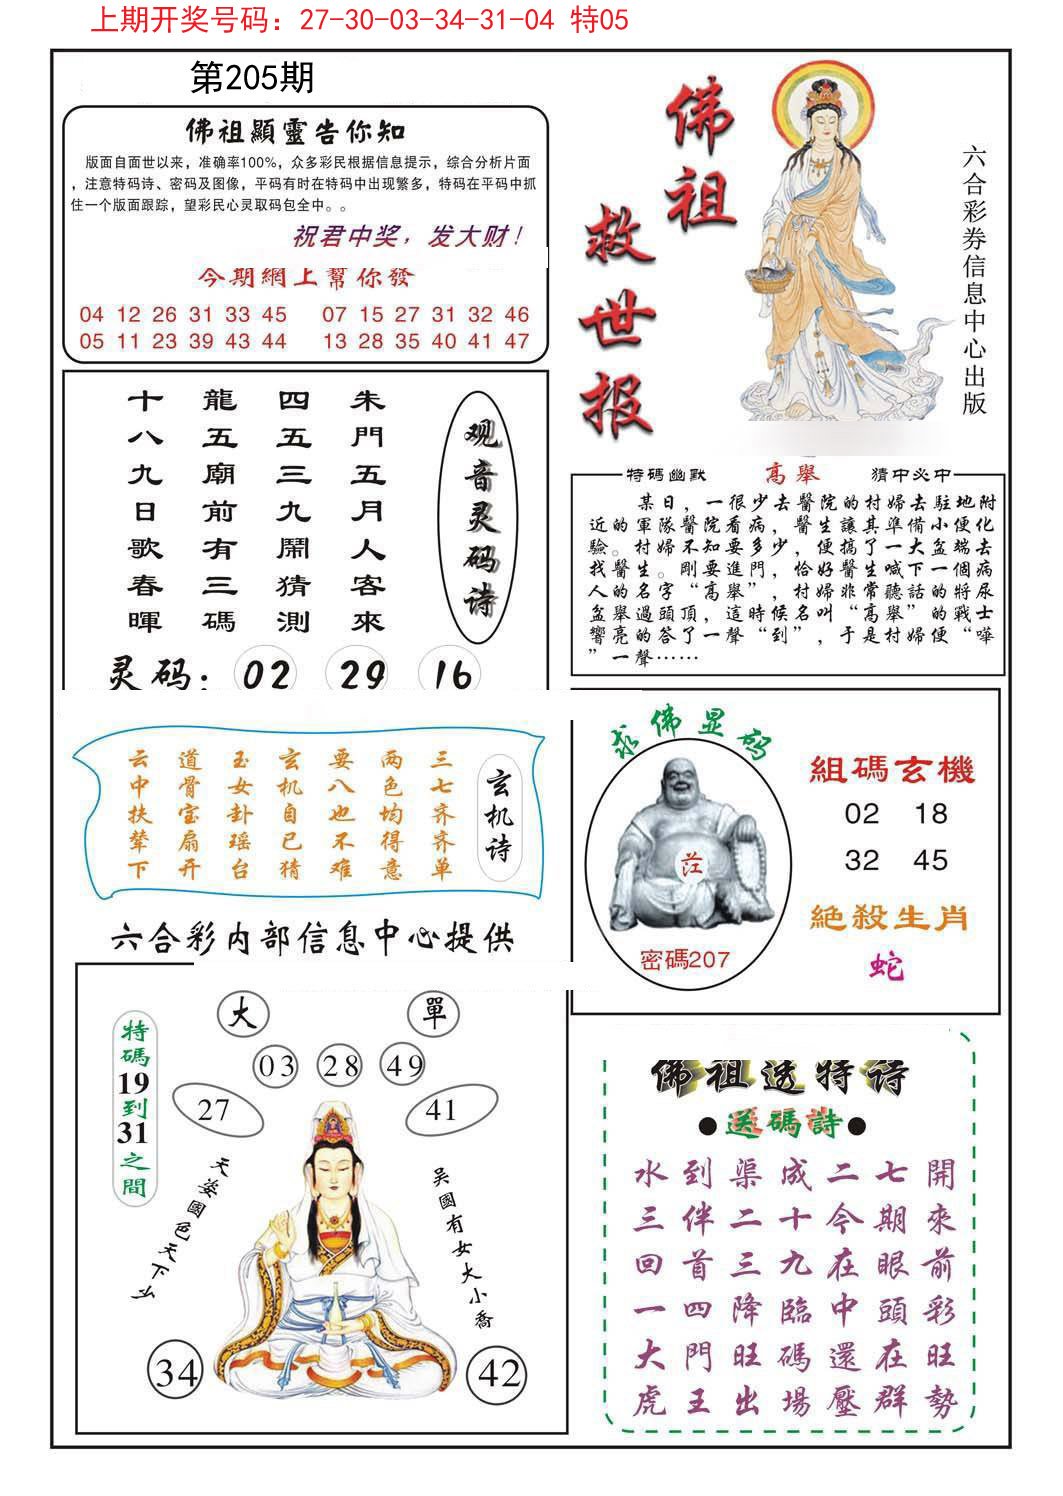 上期开奖号码：27-30-03-34-31-04 特05
第205期
佛祖顯靈告你知
版面自面世以来，准确率100%，众多彩民根据信息提示，综合分析片面
，注意特码诗、密码及图像，平码有时在特码中出现繁多，特码在平码中抓
住一个版面跟踪，望彩民心灵取码包全中。。
祝君中奖，发大财！
今期網上幫你發
04 12 26 31 33 45 07 15 27 31 32 46
05 11 23 39 43 44 13 28 35 40 41 47
佛祖
救世报
六合彩券信息中心出版
观音灵码诗
朱門五月人客來
四五三九鬧猜測
龍五廟前有三碼
十八九日歌春暉
灵码：02 29 16
特碼幽默 高舉 猜中必中
某日，一很少去醫院的村婦去駐地附
近的軍隊醫院看病，醫生讓其準備小便化
驗。村婦不知要多少，便搞了一大盆端去
找醫生。剛要進門，恰好醫生喊下一個病
人的名字“高舉”，村婦非常聽話的將尿
盆舉過頭頂，這時候名叫“高舉”的戰士
響亮的答了一聲“到”，于是村婦便“嘩
”一聲……
玄机诗
三七齐齐单
两色均得意
要八也不难
玄机自已猜
玉女卦瑶台
道骨宝扇开
云中扶辇下
六合彩内部信息中心提供
求佛显码
密碼207
組碼玄機
02 18
32 45
絕殺生肖
蛇
特碼19到31之間
大 單
03 28 49
27 41
天姿國色天下么
吴國有女大小喬
34 42
佛祖透特诗
●送碼詩●
水到渠成二七開
三伴二十今期來
回首三九在眼前
一四降臨中頭彩
大門旺碼還在旺
虎王出場壓群勢